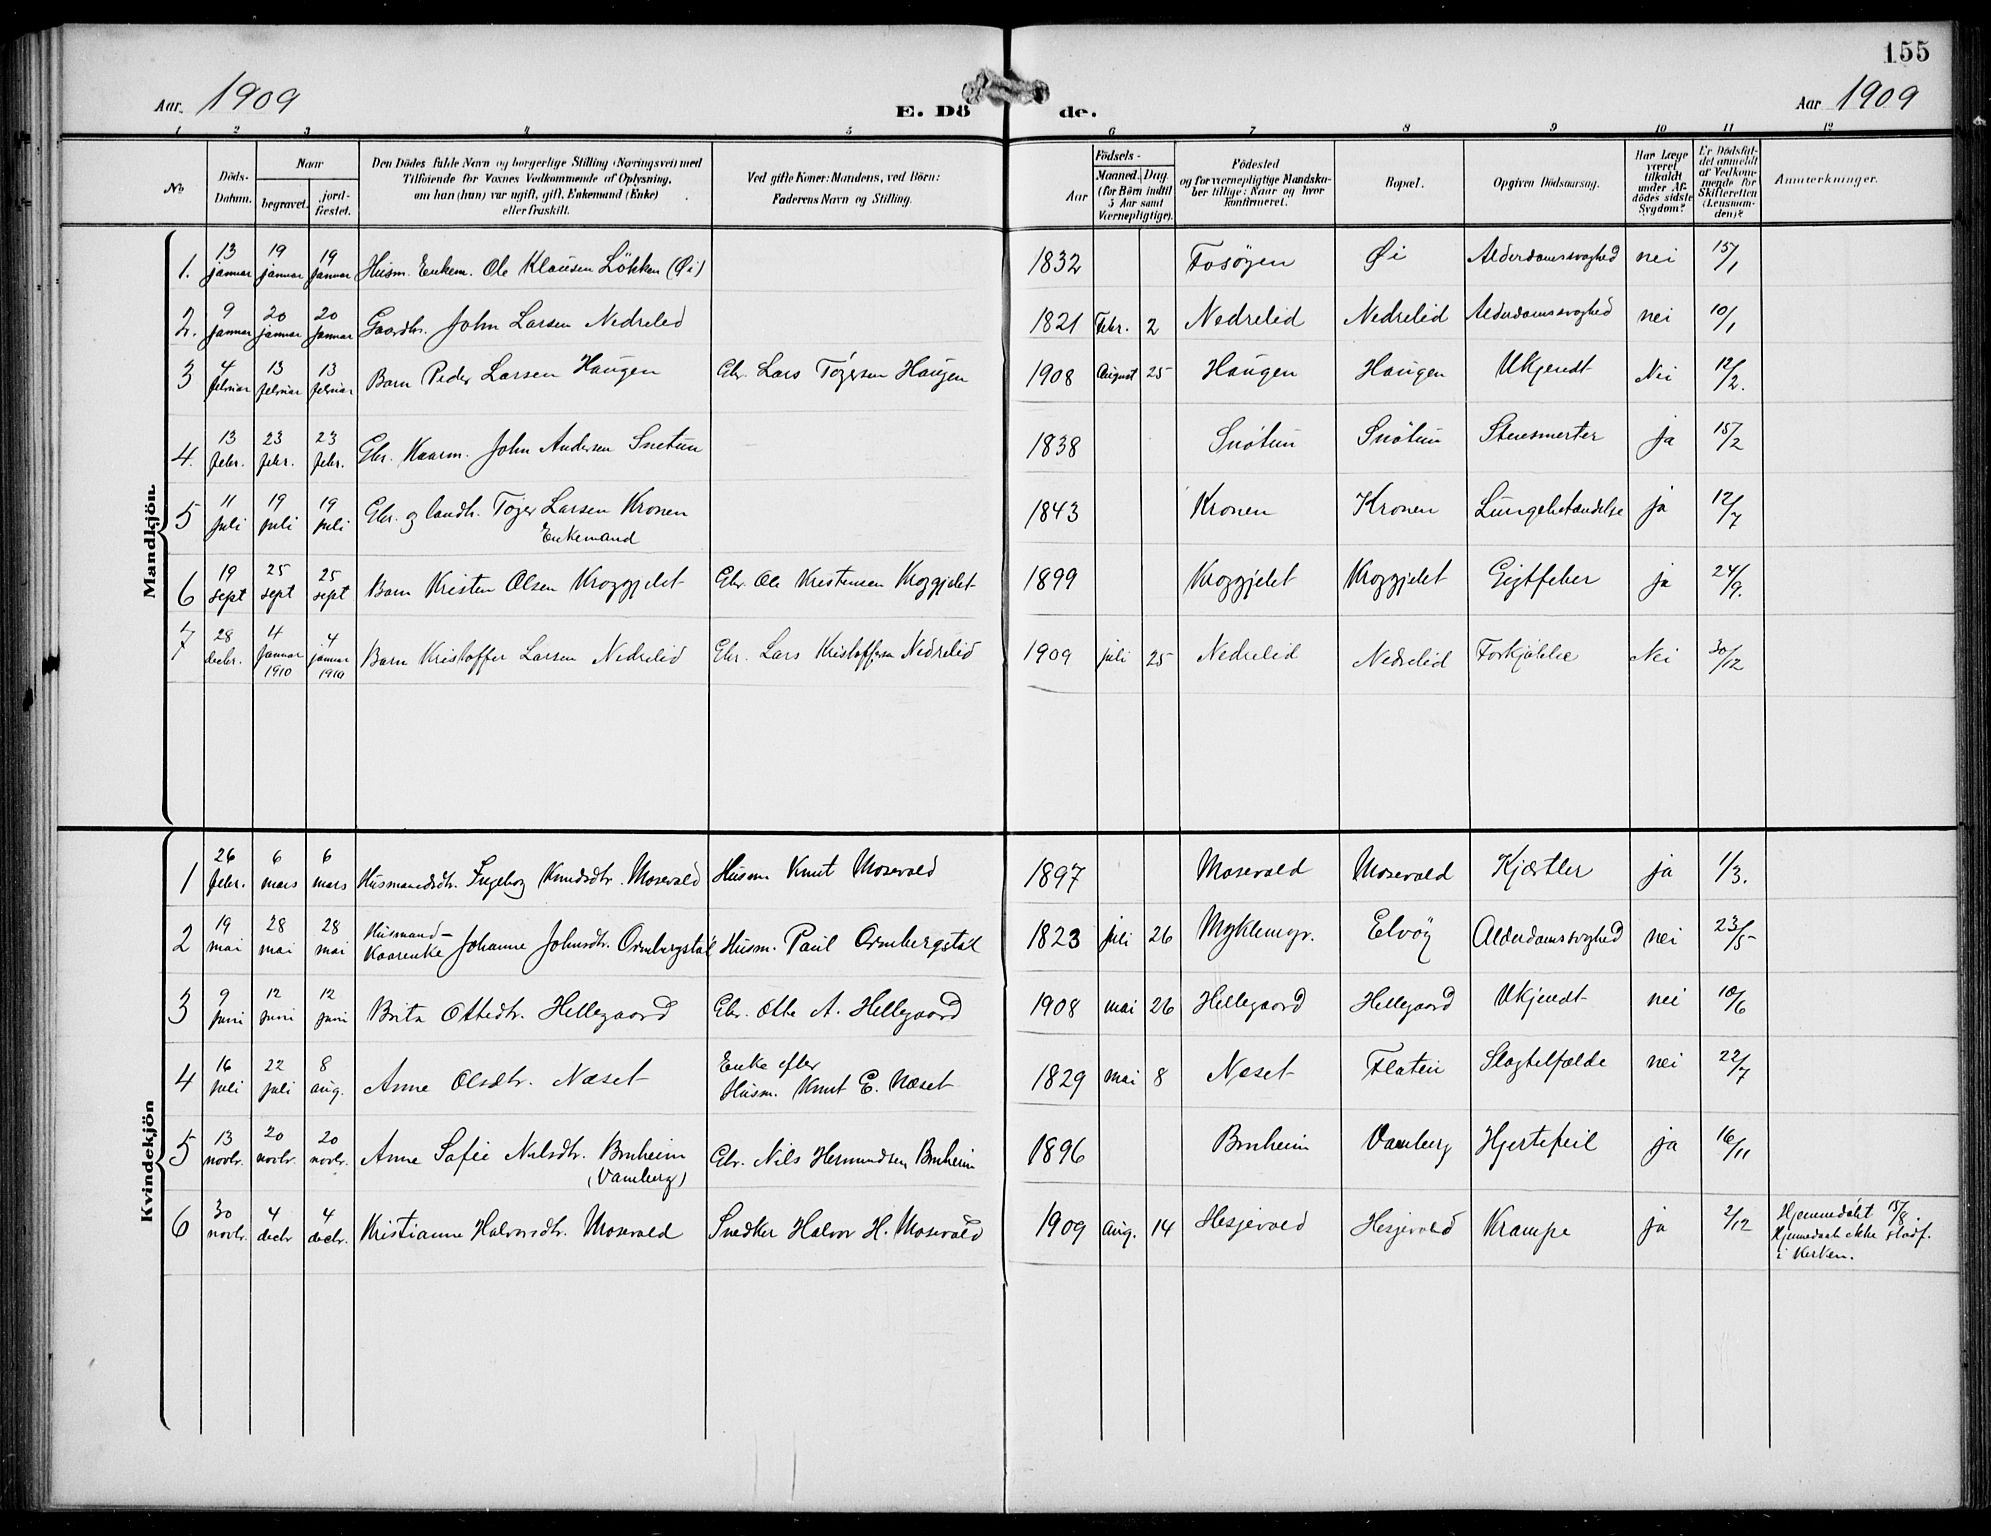 155
Aar 1909
E. Dö de.
Aar 1909
1 2 3 4 5 6 7 8 9 10 11 12
No
Döds-Datum.
Naar
begravet.
jordfæstet.
Den Dödes fulde Navn og borgerlige Stilling (Næringsvei) med
Tilföiende for Voxnes Vedkommende af Oplysning,
om han (hun) var ugift, gift, Enkemand (Enke)
eller fraskilt.
Ved gifte Koner: Mandens, ved Börn:
Faderens Navn og Stilling.
Födsels-
Aar
Maaned. Dag.
(for Börn indtil
5 Aar samt
Værnepligtige).
Födested
og for værnepligtige Mandska-
ber tillige: Naar og hvor
konfirmeret.
Bopæl.
Opgiven Dödsaarsag.
Har Læge
været
tilkaldt
under Af-
dödes sidste
Sygdom?
Er Dödsfal-
det anmeldt
af Vedkom-
mende for
Skifteretten
(Lensman-
den)?
Anmærkninger.
Mandkjön.
1. 13 januar 19 januar 19 januar Husm. Enkem. Ole Klausen Lökken (Øi) 1832 Fosöyen Øi Alderdomssvaghed nei 15/1
2. 9 januar 20 januar 20 januar Gaardbr. John Larsen Nedrelid 1821 Febr. 2 Nedrelid Nedrelid Alderdomssvaghed nei 10/1
3 4 februar 13 februar 13 februar Barn Peder Larsen Haugen Gbr. Lars Tøgersen Haugen 1908 August 25 Haugen Haugen Ukjendt Nei 12/2.
4. 13 febr. 23 febr. 23 febr. Gbr. Kaarm. John Andersen Snetun 1838 Snötun Snötun Stensmerter ja 15/2
5 11 juli 19 juli 19 juli Gbr. og landh. Tøger Larsen Kronen
Enkemand 1843 Kronen Kronen Lungebetændelse ja 12/7
6 19 sept 25 sept 25 sept Barn Kristen Olsen Kroggjelet Gbr. Ole Kristensen Kroggjelet 1899 Kroggjelet Kroggjelet Gigtfeber ja 24/9.
7 28 decbr. 4 januar 1910 4 januar 1910 Barn Kristoffer Larsen Nedrelid Gbr. Lars Kristoffersen Nedrelid 1909 juli 25 Nedrelid Nedrelid Forkjölelse Nei 30/12
Kvindekjön
1 26 febr. 6 mars 6 mars Husmandsdtr. Ingeborg Knudsdtr. Mosevold Husm Knut Mosevold 1897 Mosevold Mosevold Kjertler ja 1/3.
2 19 mai 28 mai 28 mai Husmand-
Kaarenke Johanne Johnsdtr. Ormbergstøl Husm. Paul Ormbergstøl 1823 juli 26 Myklemyr. Elvöy Alderdomssvaghed nei 23/5
3 9 juni 12 juni 12 juni Brita Ottedtr. Hellegaard Gbr. Otte A. Hellegaard 1908 mai 26 Hellegaard Hellegaard Ukjendt nei 10/6
4 16 juli 22 juli 8 aug. Anne Olsdtr. Næset Enke efter
Husm. Knut E. Næset 1829 mai 8 Næset Flaten Slagtelfælde nei 22/7
5 13 novbr. 20 novbr. 20 novbr. Anne Sofie Nilsdtr. Bruheim
(Vamberg) Gbr. Nils Hermundsen Bruheim 1896 Bruheim Vamberg Hjertefeil ja 16/11
6 30 novbr. 4 decbr 4 decbr. Kristianne Halvorsdtr. Mosevold Snedker Halvor H. Mosevold 1909 Aug. 14 Hesjevold Hesjevold Krampe ja 2/12 Hjemmedöbt 15/8.
Hjemmedaab ikke stadf.
i Kirken.